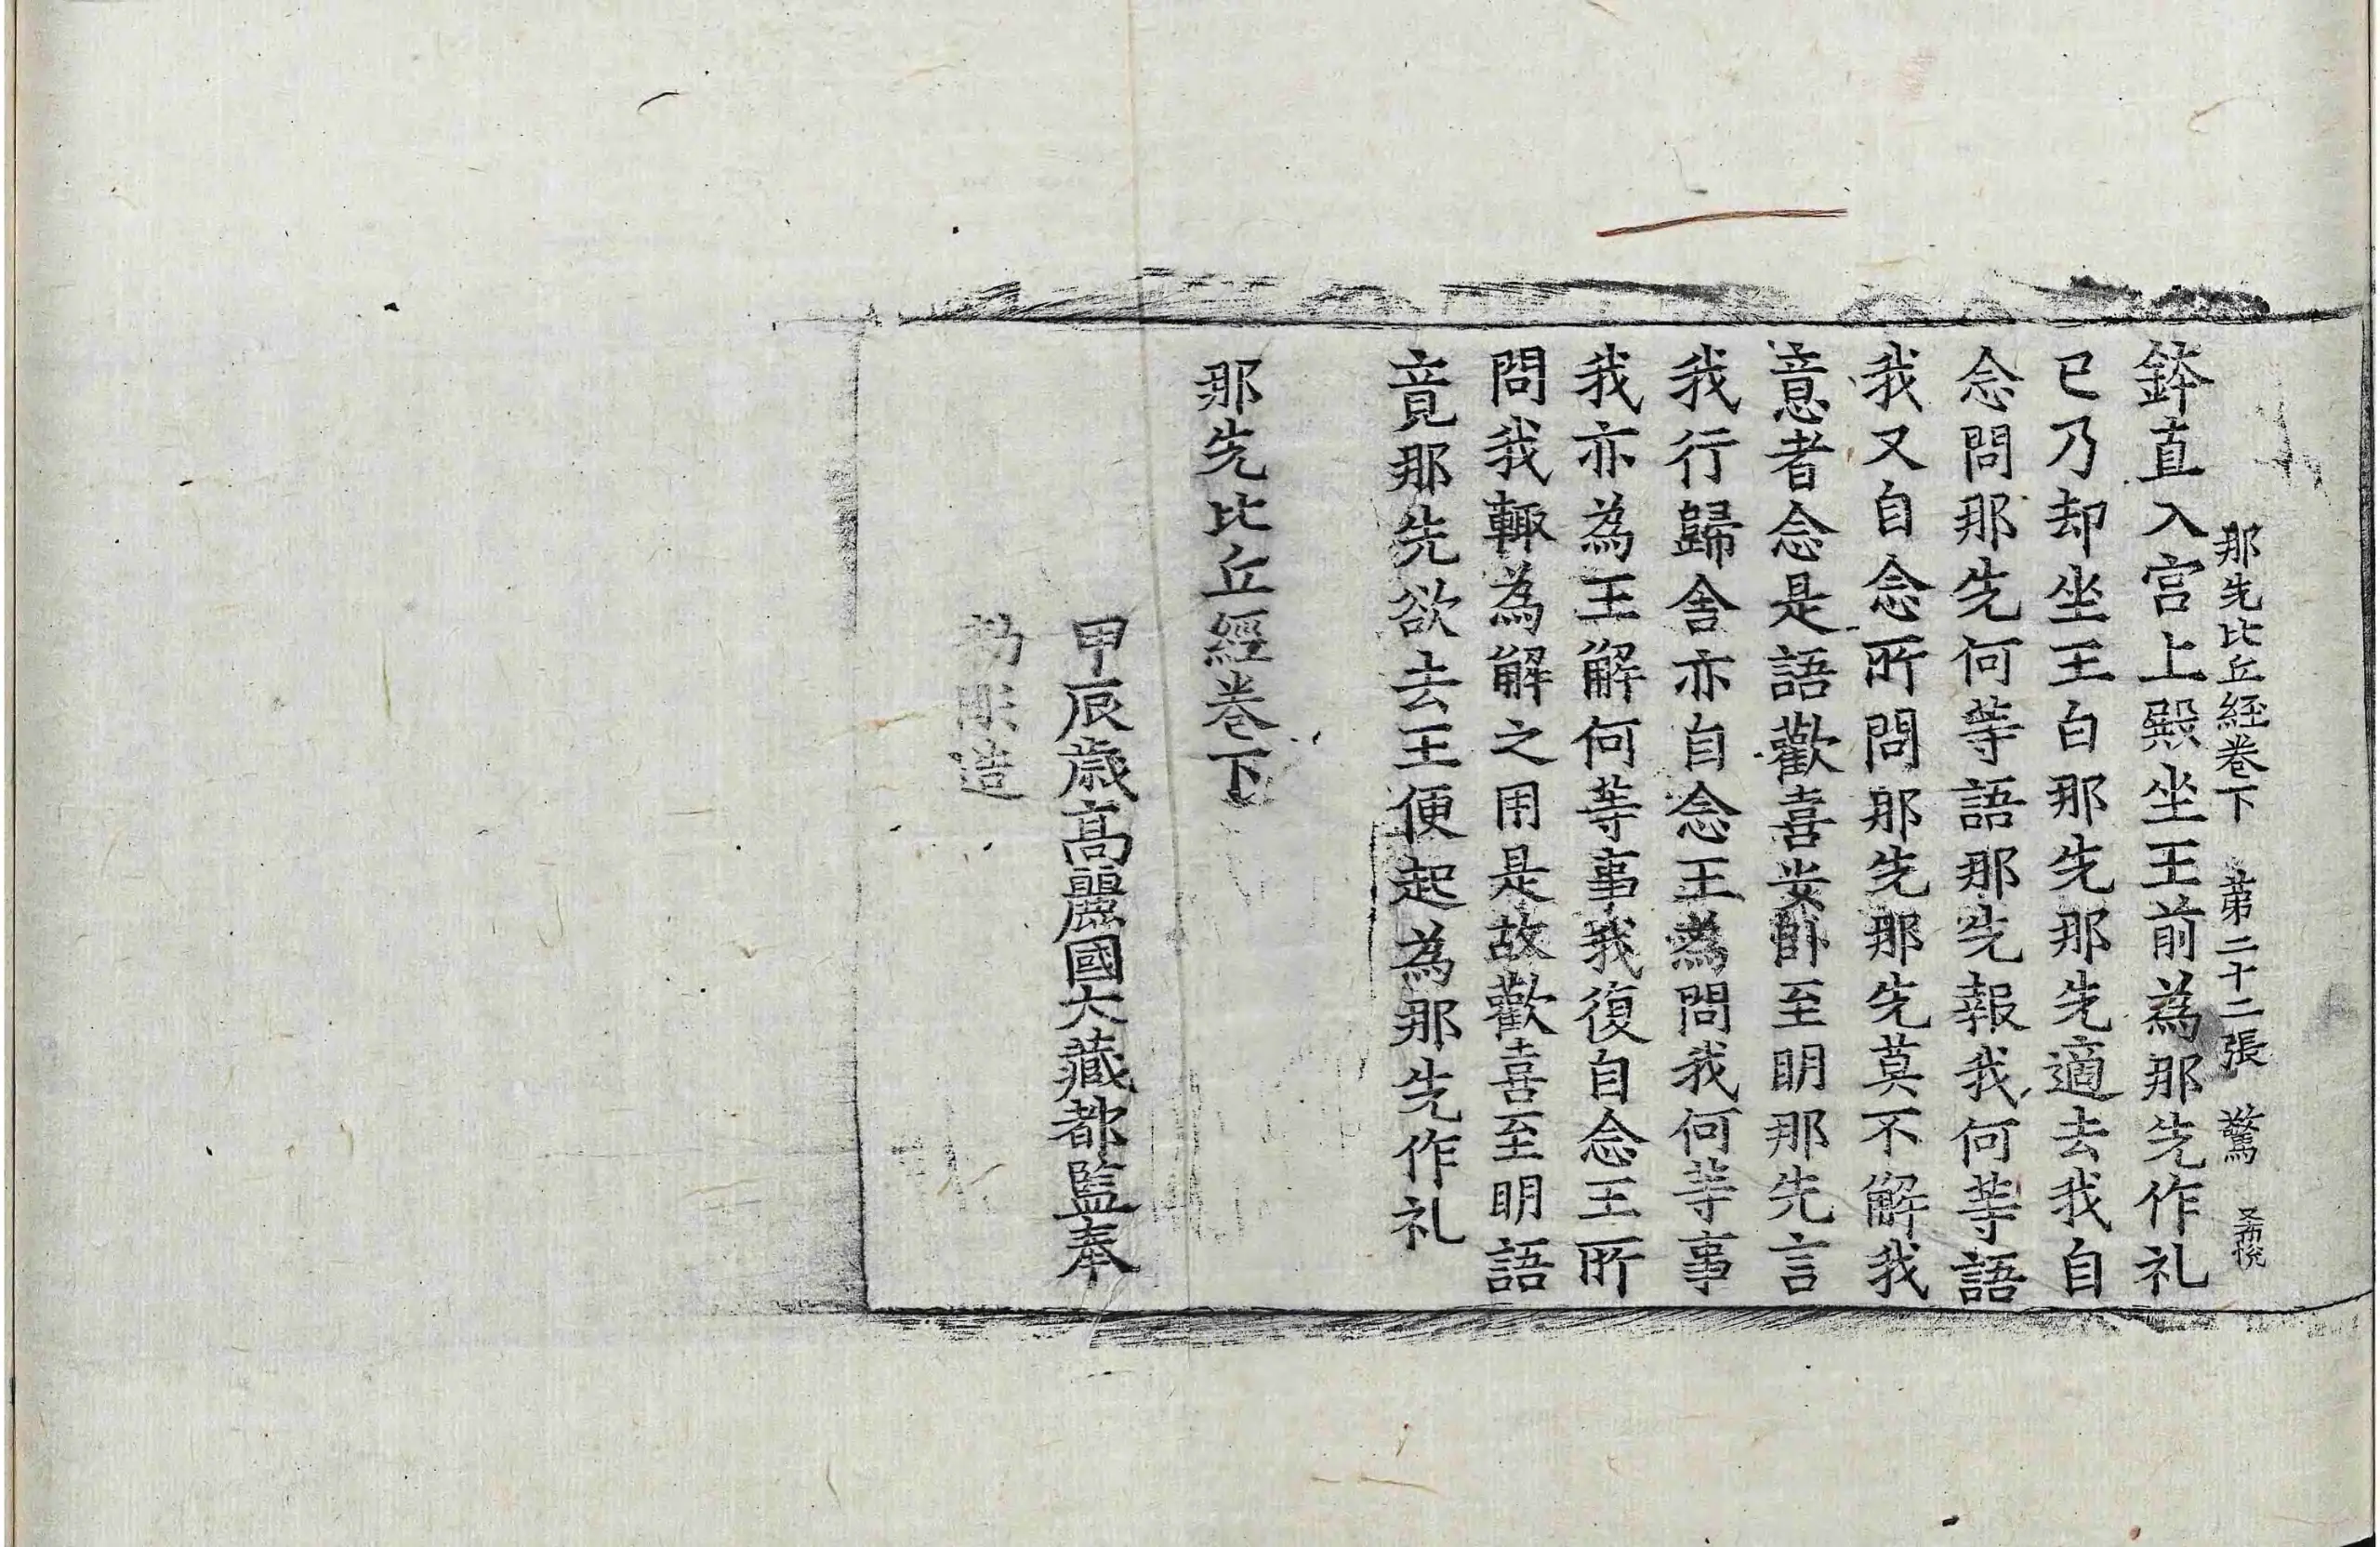 那先比丘経卷下 第二十二張 驚
鉢直入宫上殿坐王前為那先作礼
已乃却坐王白那先那先適去我自
念問那先何等語那先報我何等語
我又自念所問那先那先莫不解我
意者念是語歡喜安卧至明那先言
我行歸舍亦自念王為問我何等事
我亦為王解何等事我復自念王所
問我輙為解之用是故歡喜至明語
竟那先欲去王便起為那先作礼
那先比丘經卷下
甲辰歳髙麗國大藏都監奉
勑彫造